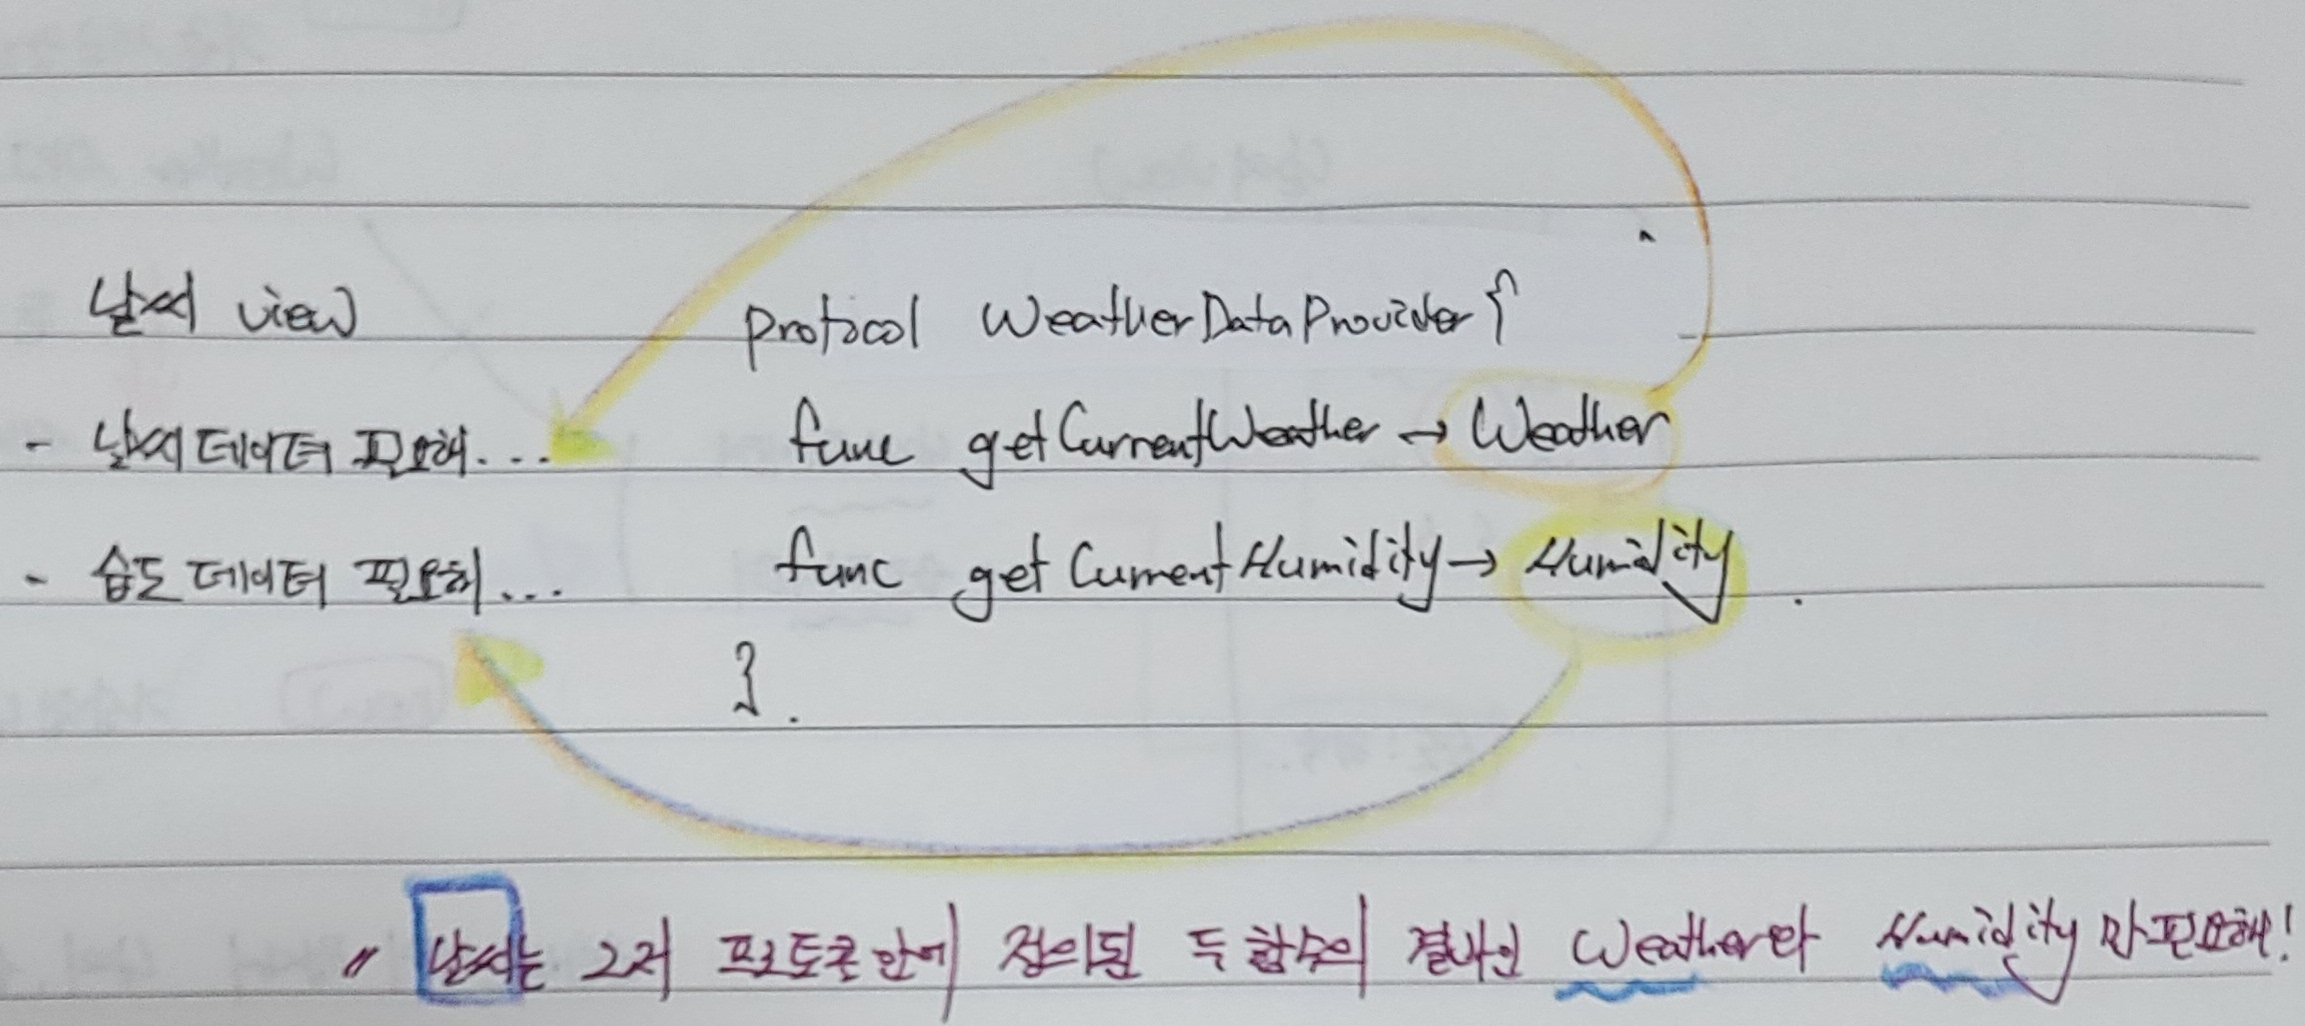 날씨 view
- 날씨 데이터 필요해...
- 습도 데이터 필요해...
protocol WeatherDataProvider {
func getCurrentWeather → Weather
func getCurrentHumidity → Humidity
}.
〃 날씨는 그저 프로토콜 안에 정의된 두 함수의 결과인 Weather와 Humidity 만 필요해!